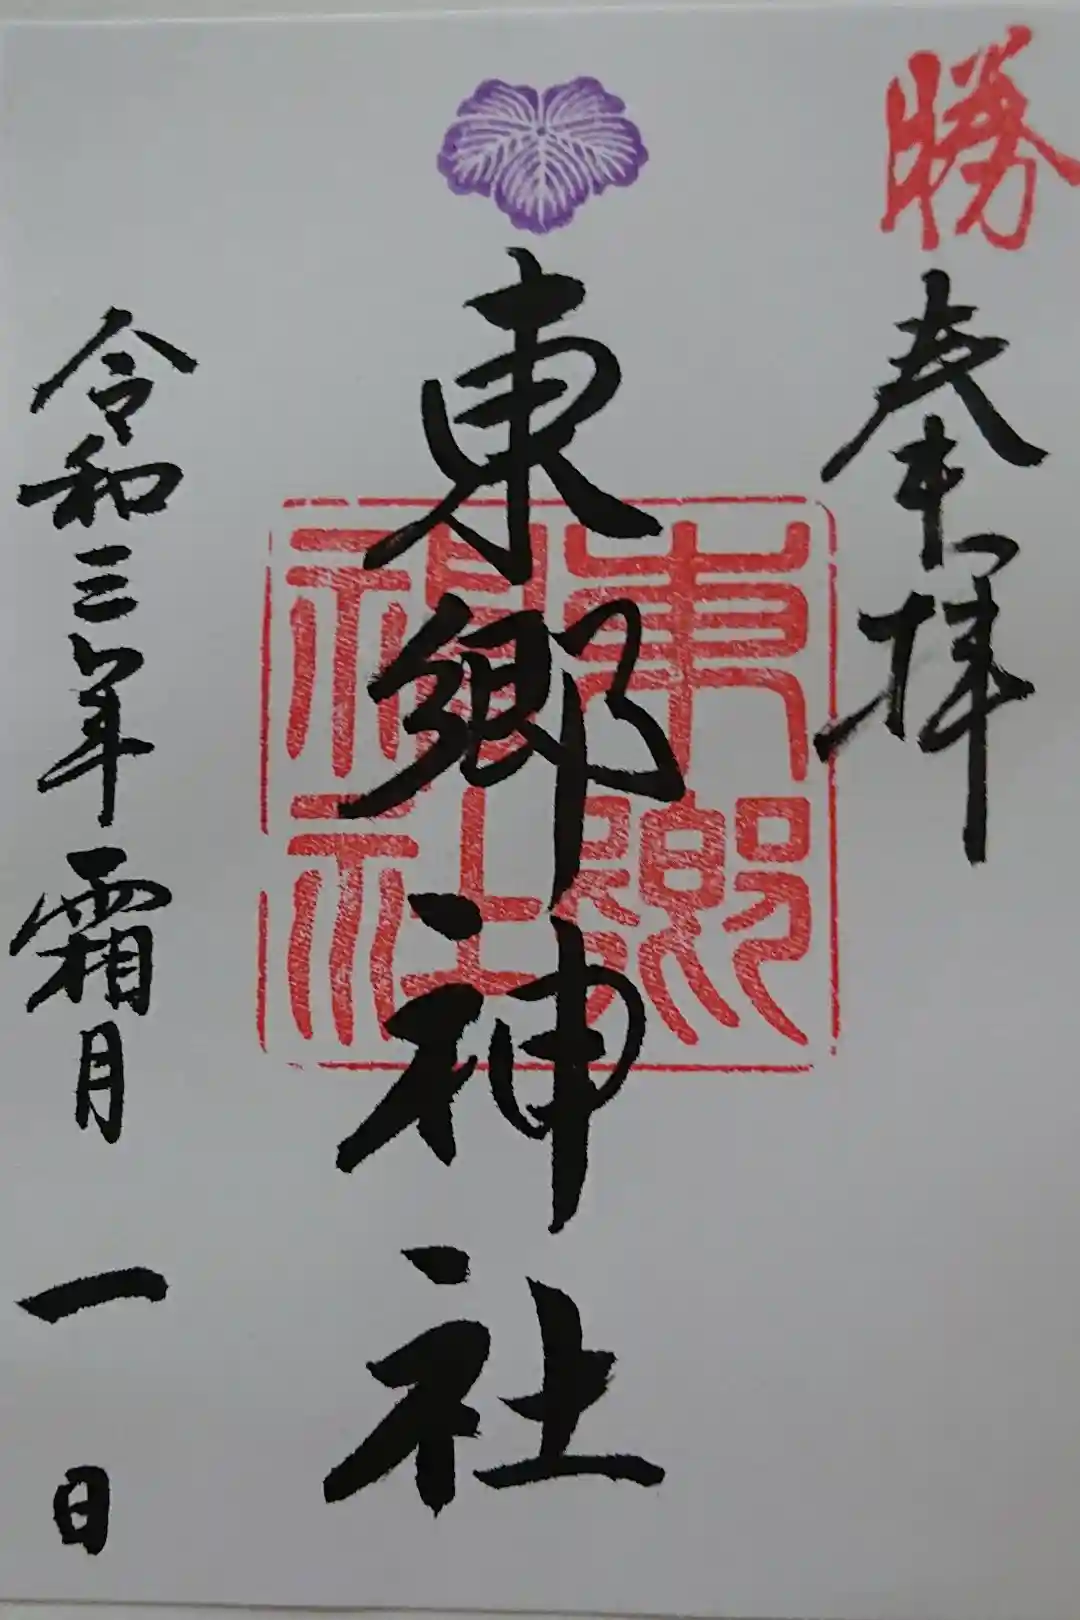 勝
奉拝
東郷神社
東郷
神社
令和三年霜月一日